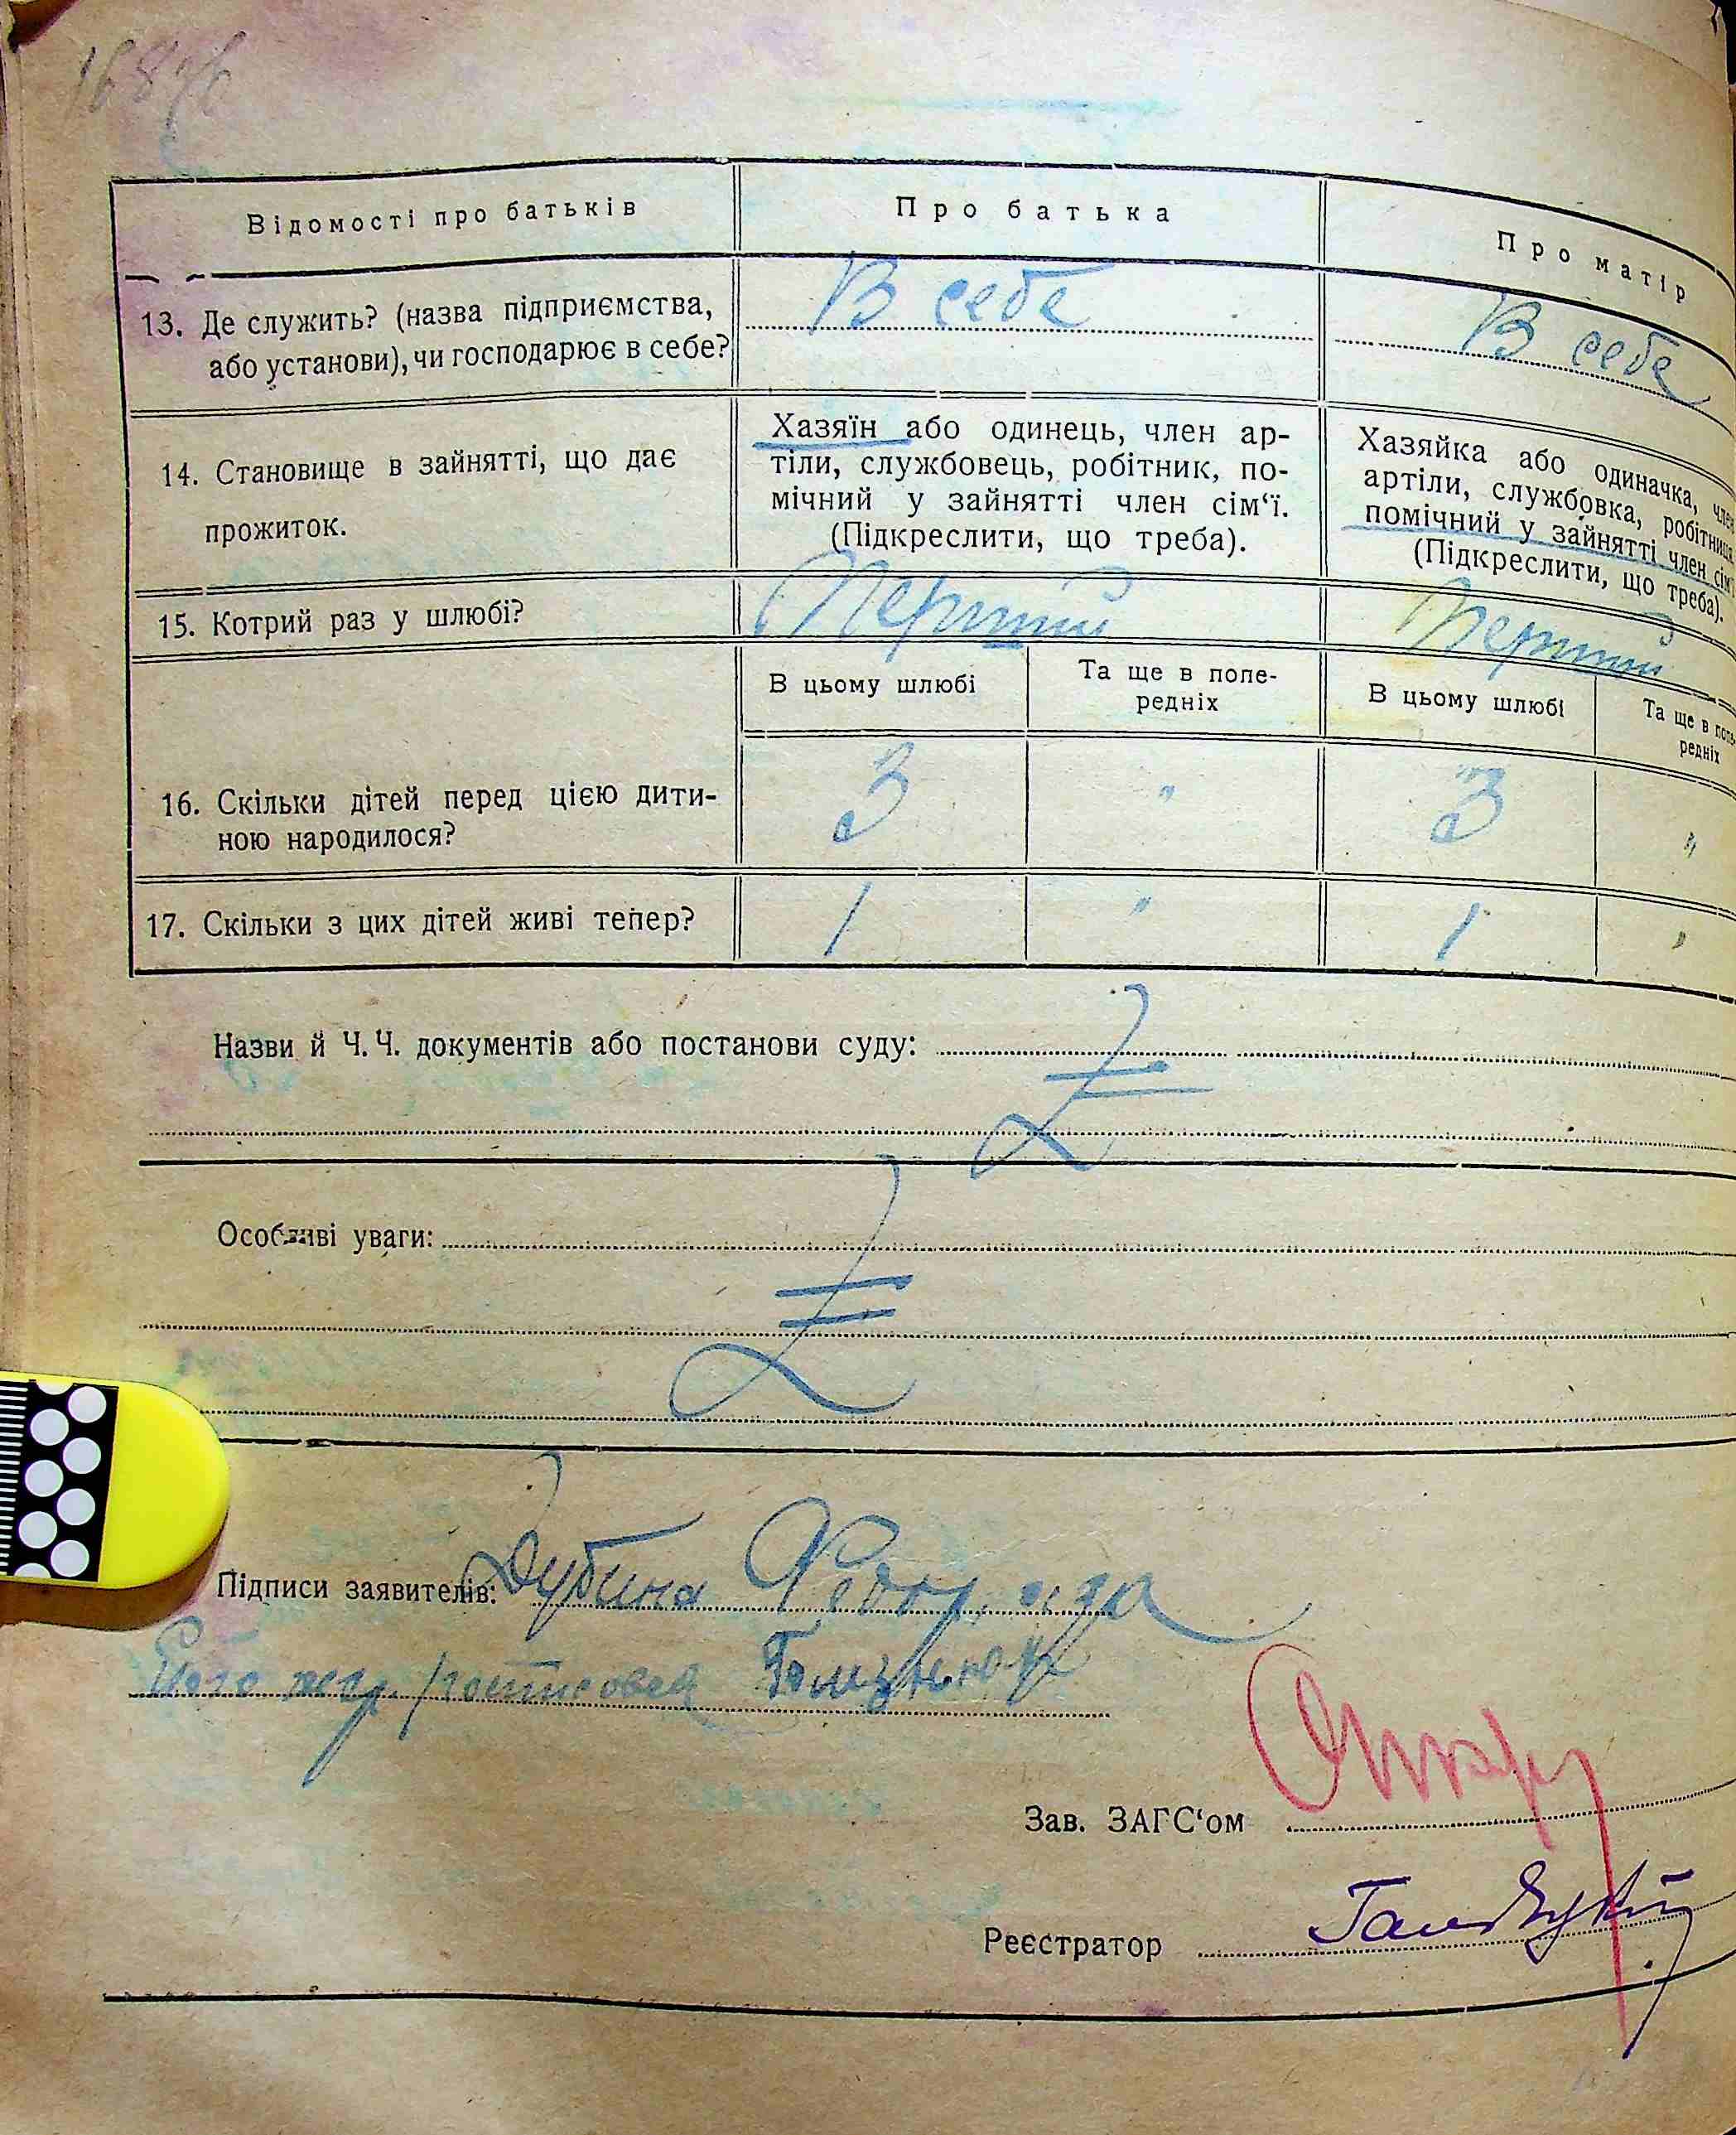 Відомості про батьків
Про батька
Про матір
13. Де служить? (назва підприємства,
або установи), чи господарює в себе?
В себе
В себе
14. Становище в зайнятті, що дає
прожиток.
Хазяїн або одинець, член ар-
тіли, службовець, робітник, по-
мічний у зайнятті член сім‘ї.
(Підкреслити, що треба).
Хазяйка або одиначка, член
артіли, службовка, робітниця
помічний у зайнятті член сім‘ї
(Підкреслити, що треба).
15. Котрий раз у шлюбі?
Перший
Перший
В цьому шлюбі
Та ще в попе-
редніх
В цьому шлюбі
Та ще в попе-
редніх
16. Скільки дітей перед цією дити-
ною народилося?
3
"
3
"
17. Скільки з цих дітей живі тепер?
1
"
1
"
Назви й Ч. Ч. документів або постанови суду:
Особливі уваги:
Підписи заявителів: Дубина Федор
Зав. ЗАГС‘ом
Реєстратор